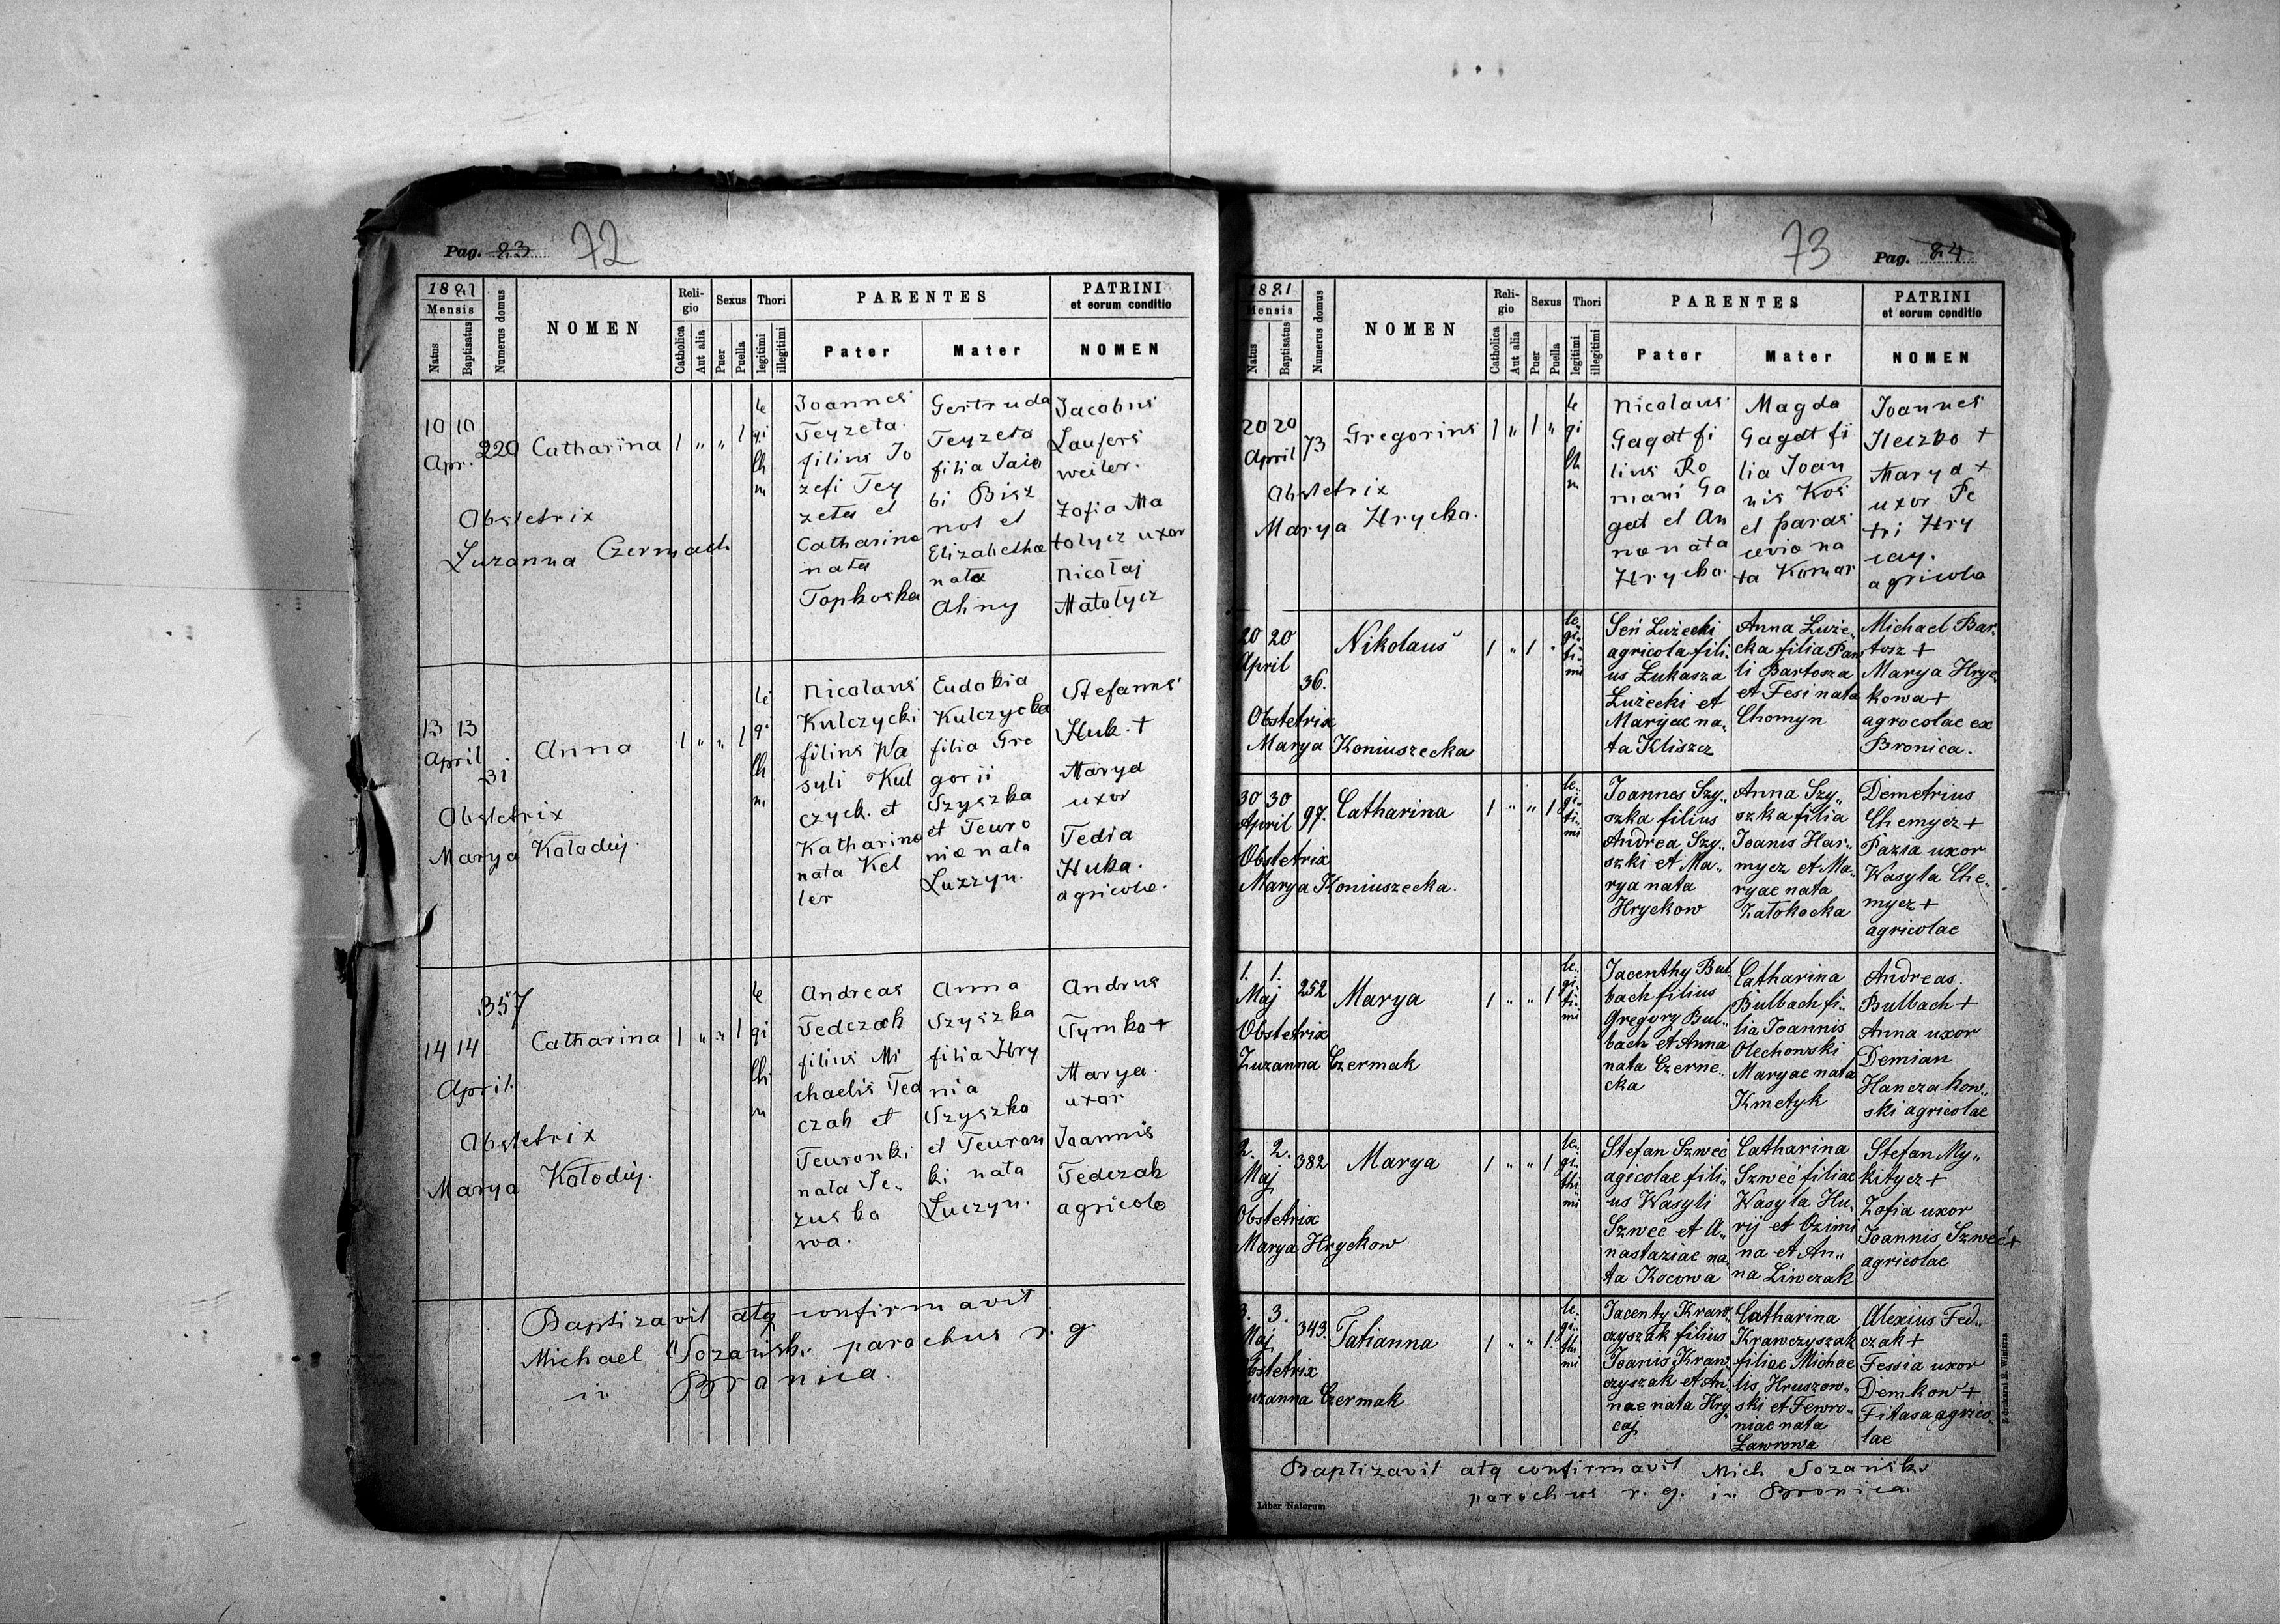 Pag. 83 72
1881
Mensis
Natus
Baptisatus
Numerus domus
NOMEN
Religio
Catholica
Aut alia
Sexus
Puer
Puella
Thori
legitimi
illegitimi
PARENTES
Pater
Mater
PATRINI
et eorum conditio
NOMEN
10 10
Apr.
220
Catharina
1 " " 1
le
gi
th
m
Obstetrix
Zuzanna Czermach
Joannes
Teyzeta
filius Jo
zefi Tey
zeta et
Catharina
nata
Topkoska
Gertruda
Teyzeta
filia Jaio
bi Bisz
not et
Elizabetha
nata
Ahny
Jacobus
Laufers
weiler.
Zofia Ma
tolycz uxor
Nicołaj
Matołycz
13 13
April
31
Anna
1 " " 1
le
gi
th
m
Obstetrix
Marya Koładij.
Nicolaus
Kulczycki
filius Wa
syli Kul
czyck. et
Katharina
nata Kel
ler
Eudokia
Kulczycka
filia Gre
gorii
Szyszka
et Teuro
niae nata
Luczyn.
Stefanus
Huk. +
Marya
uxor
Fedia
Huka.
agricolae.
357
14 14
April.
Catharina
1 " " 1
le
gi
th
m
Obstetrix
Marya Kołodij.
Andreas
Fedczak
filius Mi
chaelis Fed
czak et
Teuronki
nata Je„
zus ka
wa.
Anna
Szyszka
filia Hry
nia
Szyszka
et Teuron
ki nata
Luczyn.
Andrus
Tymko+
Marya
uxor
Joannis
Fedczak
agricola
Baptizavit atq confirmavit
Michael Sozansk. parochus r. g
in Bronica.
73 Pag. 84
1881
Mensis
Natus
Baptisatus
Numerus domus
NOMEN
Religio
Catholica
Aut alia
Sexus
Puer
Puella
Thori
legitimi
illegitimi
PARENTES
Pater
Mater
PATRINI
et eorum conditio
NOMEN
20 20
April
73
Gregorius
1 " 1 "
le
gi
th
m
Obstetrix
Marya Hrycka.
Nicolaus
Gagat fi
lius Ro
mani Ga
gat et An
nae nata
Hrycka.
Magda
Gagat fi
lia Joan
nis Kos
et Paras
ceviae na
ta Komar
Joannes
Ileczko +
Marya +
uxor Pe
tri Hry
cay.
agricola
20 20
April
36.
Nikolaus
1 " 1 "
le„
gi„
ti„
mi
Obstetrix
Marya Koniuszecka
Seń Łużecki
agricola fili„
us Łukasza
Łużecki et
Maryae na„
ta Kliszcz
Anna Łuże„
cka filia Paw
li Bartosza
et Fesi nata
Chomyn
Michael Bar„
tosz +
Marya Hryc„
kowa +
agrocolae ex
Bronica.
30 30
April
97.
Catharina
1 " " 1
le„
gi„
ti„
mi
Obstetrix
Marya Koniuszecka.
Joannes Szy„
szka filius
Andrea Szy„
szki et Ma„
rya nata
Hryckow
Anna Szy„
szka filia
Joanis Har„
mycz et Ma„
ryae nata
Załokocka
Demetrius
Chemycz +
Pazia uxor
Wasyla Che„
mycz +
agricolae
1. 1.
Maj
252
Marya
1 " " 1
le„
gi„
ti„
mi
Obstetrix
Zuzanna Czermak
Jacenthy Bul„
bach filius
Gregory Bul„
bach et Anna
nata Czerne„
cka
Catharina
Bulbach fi„
lia Joannis
Olechowski
Maryae nata
Kmetyk
Andreas.
Bulbach +
Anna uxor
Demian
Hanczakow„
ski agricolae
2. 2.
Maj
382
Marya
1 " " 1
le„
gi„
thi
mi
Obstetrix
Marya Hryckow
Stefan Szweć
agicolae fili„
us Wasyli
Szweć et A„
nastaziae na„
ta Kocowa
Catharina
Szweć filiae
Wasyla Hu„
rij et Ozimi
na et An„
na Liwczak
Stefan My„
kitycz +
Zofia uxor
Joannis Szweć +
agricolae
3. 3.
Maj
343.
Tatianna
1 " " 1.
le„
gi„
thi
mi
Obstetrix
Zuzanna Czermak
Jacenty Kraw„
czyszak filius
Joanis Kraw„
czyszak et An„
nae nata Hry
caj
Catharina
Krawczyszak
filiae Michae
lis, Hruszow„
ski et Fewro„
niae nata
Ławrowa
Alexius Fed„
czak +
Fessia uxor
Demkow +
Fitasa agrico„
lae
Baptizavit atq confirmavit Mich Sozański
parochus r. g. in Bronica.
Liber Natorum
Z drukarni E. Winiarza